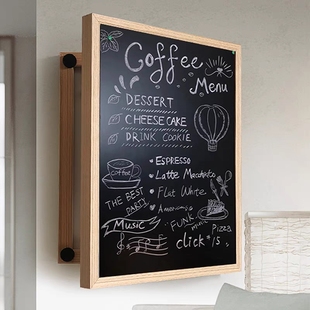 Coffee
Menu
DESSERT
CHEESE CAKE
DRINK COOKIE
ESPRESSO
Latte Macchiato
Flat White
Coffee
THE BEST
PARTY
FUNK
Pizza
Music
click $ 15